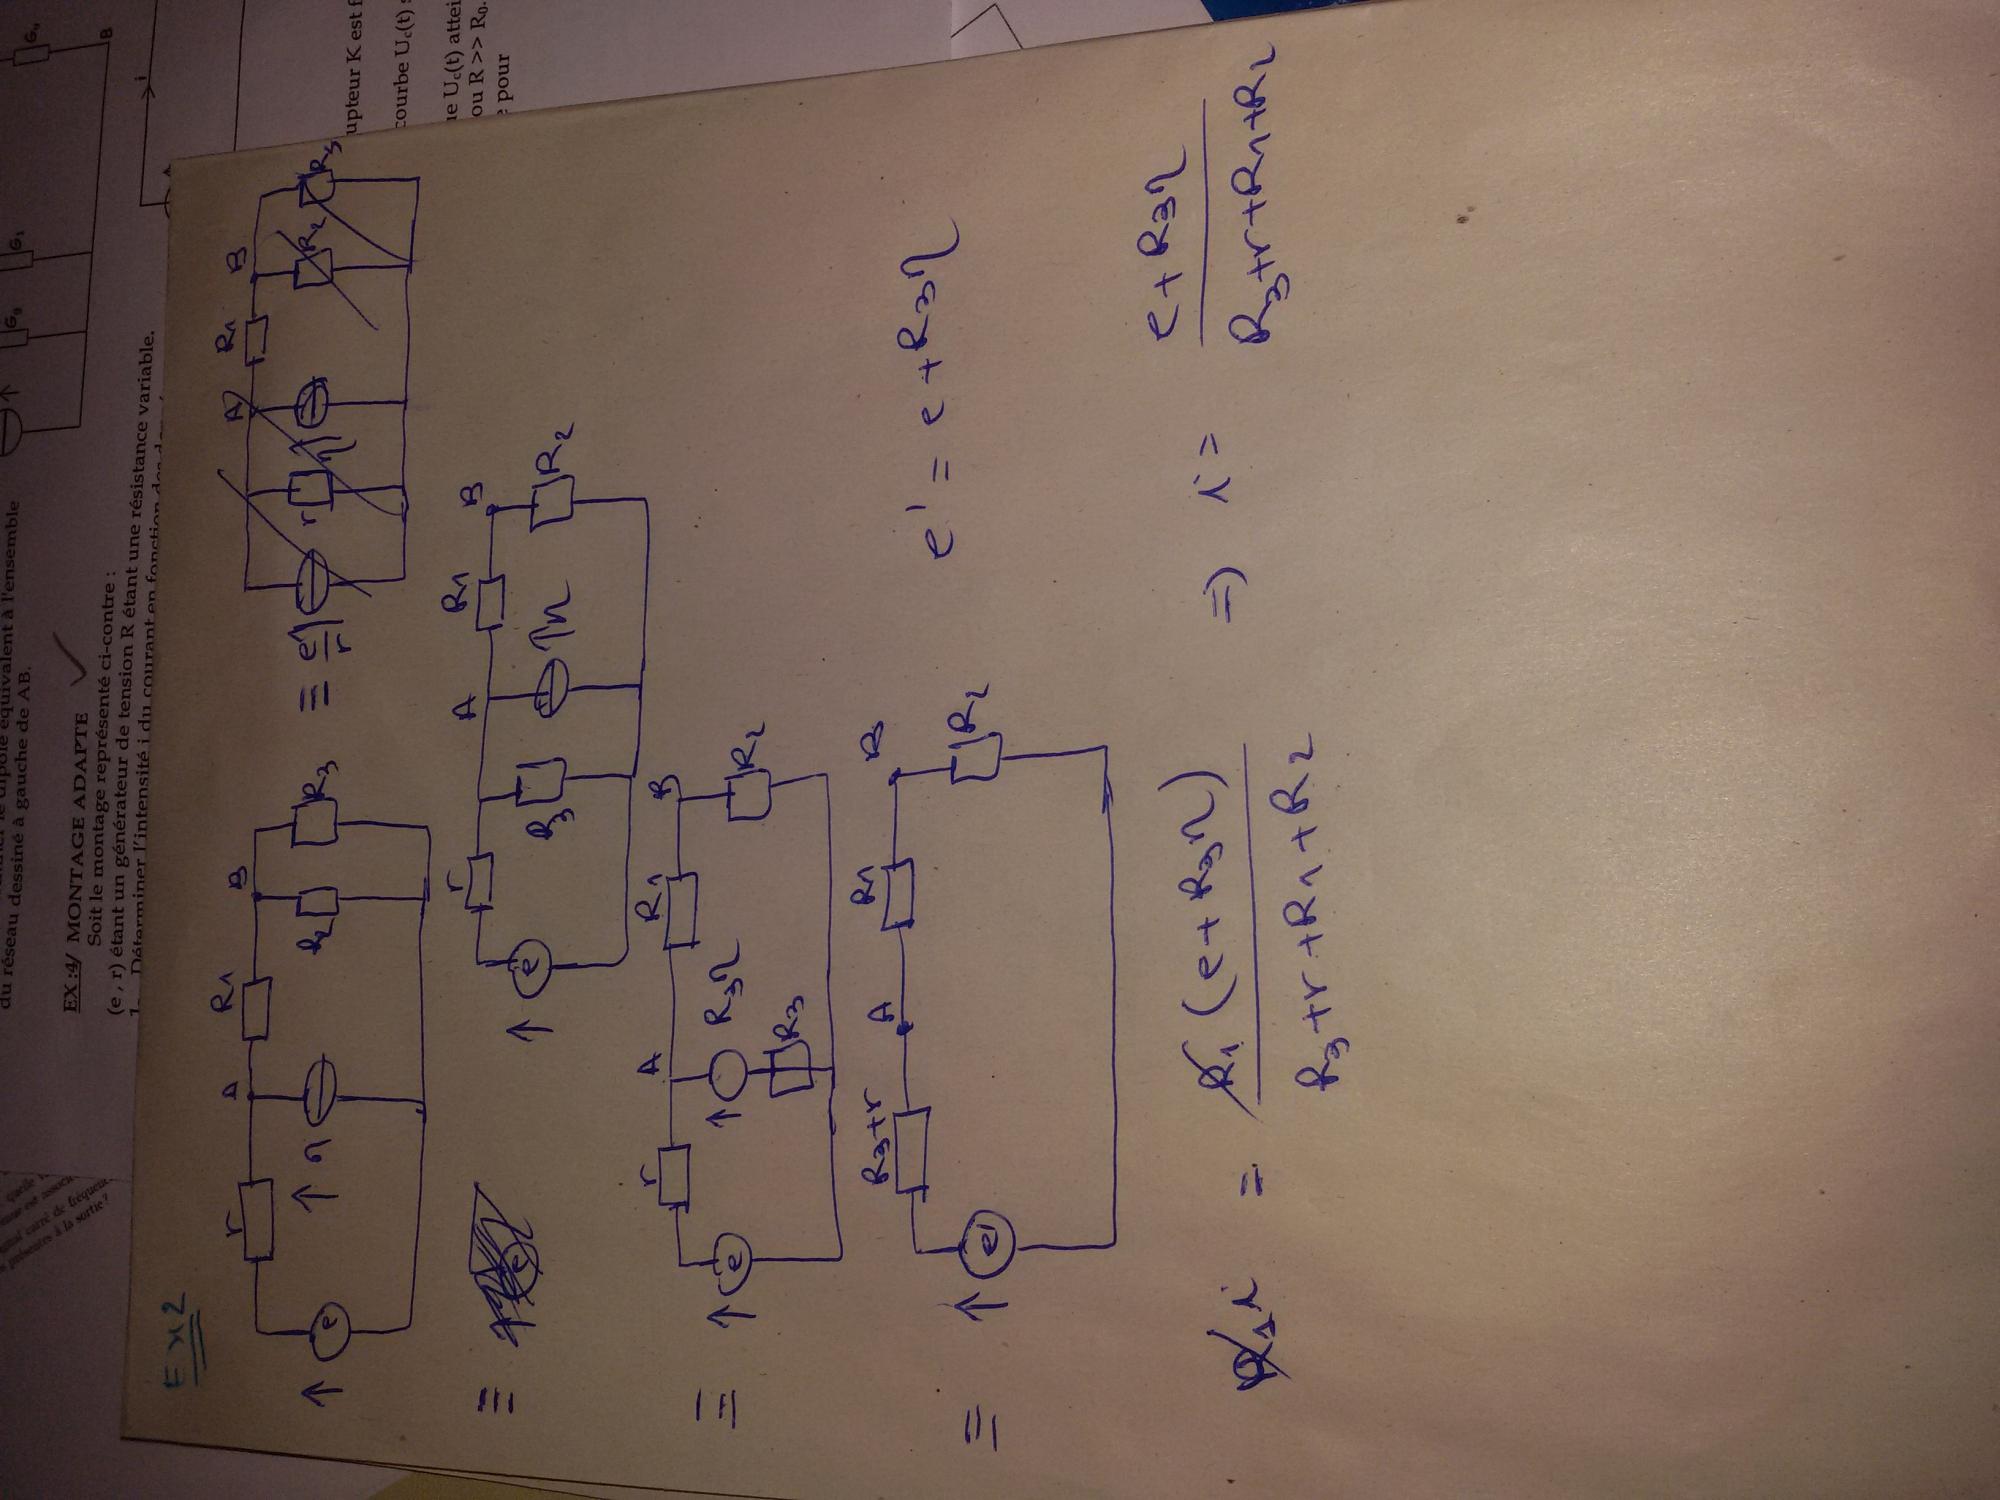 G₀
G₁
Gₙ
B
i
du réseau dessiné à gauche de AB.
EX :4/ MONTAGE ADAPTE
Soit le montage représenté ci-contre :
(e , r) étant un générateur de tension R étant une résistance variable.
1. Déterminer l'intensité i du courant en fonction des
upteur K est f
courbe Uc(t) s
ue Uc(t) attei
ou R >> R₀.
e pour
présentes à la sortie?
Ex2
e
r
η
A
R1
B
R2
R3
≡
e/r
r
η
A
R1
B
R2
R3
≡
e
r
R3
A
η
R1
B
R2
≡
e
r
A
R3η
R3
R1
B
R2
≡
e'
R3+r
A
R1
B
R2
e' = e + R3η
R1 i = R1 (e + R3η) / R3+r+R1+R2
⇒ i = e + R3η / R3+r+R1+R2